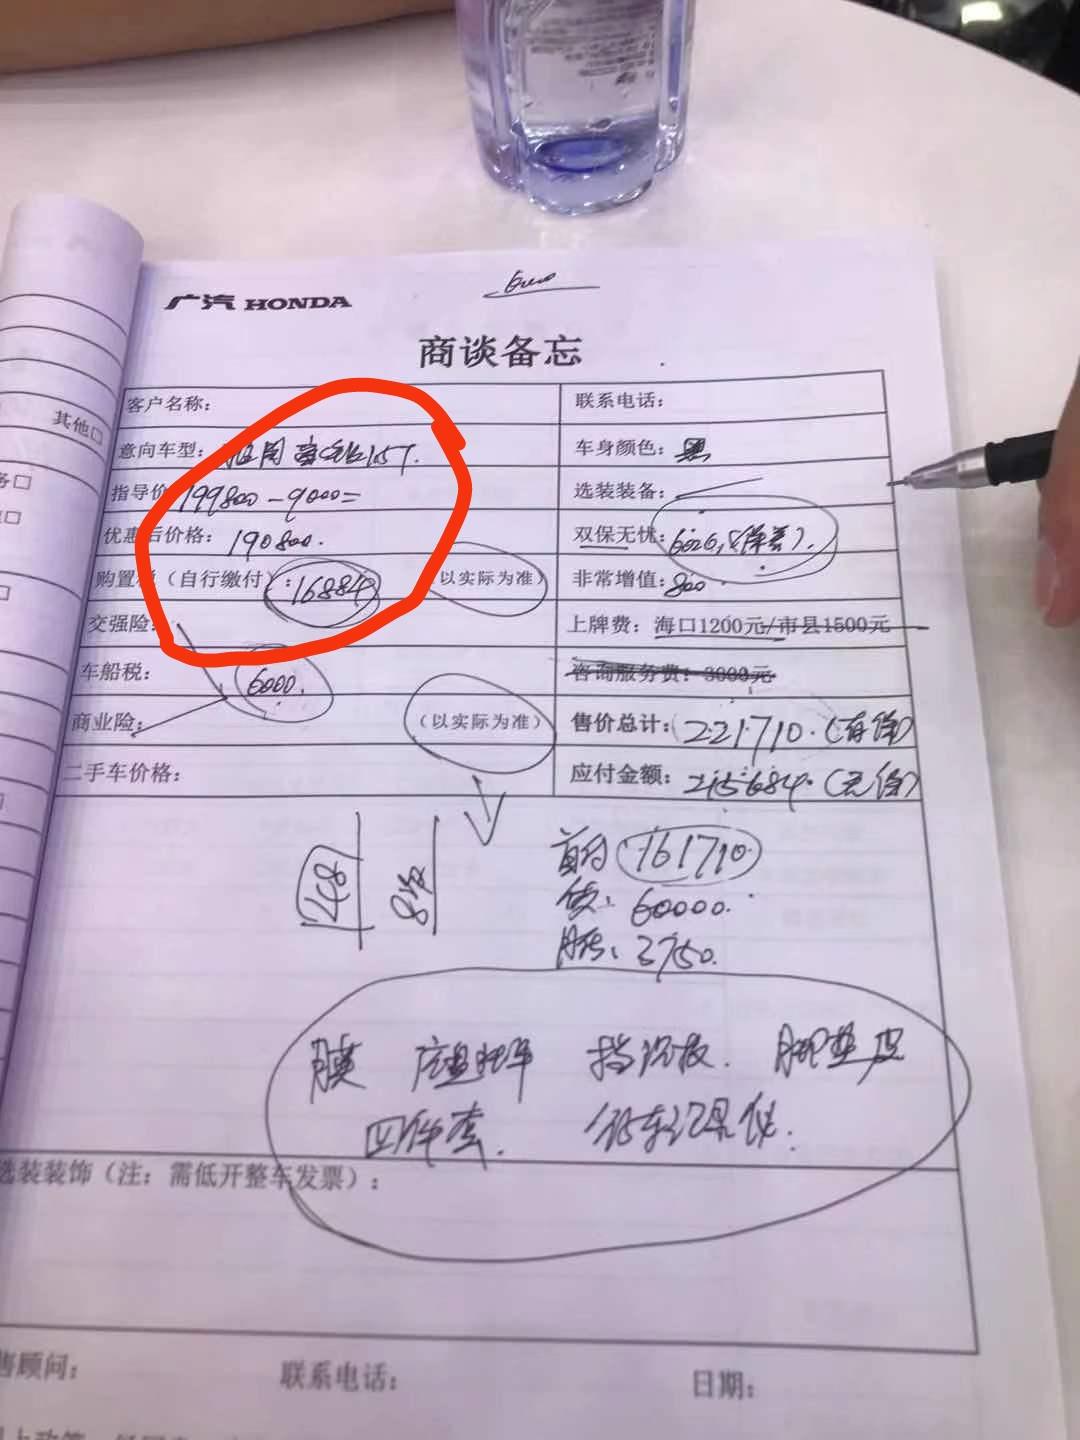 广汽 HONDA
商谈备忘
客户名称：
联系电话：
意向车型： 1.5T
车身颜色：黑
指导价 199800-9000=
选装装备：
优惠后价格：190800.
双保无忧：6026
购置税（自行缴付）：16884（以实际为准）
非常增值：800
交强险：
上牌费：海口1200元/市县1500元
车船税：
6000.
咨询服务费：3000元
商业险： （以实际为准）
售价总计：221710.
二手车价格：
应付金额：215684.
首付 161710
贷：60000.
月供：3750.
膜 脚垫
四件套. 行车记录仪.
选装装饰（注：需低开整车发票）：
售顾问：
联系电话：
日期：
其他□
务□